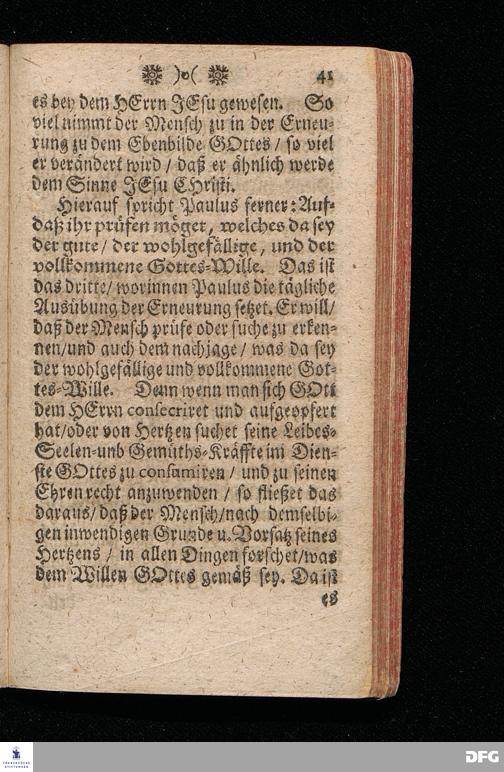 )o( 41
es bey dem HErrn JEsu gewesen. So
viel nimmt der Mensch zu in der Erneu-
rung zu dem Ebenbilde GOttes / so viel
er verändert wird / daß er ähnlich werde
dem Sinne JEsu CHristi.
Hierauf spricht Paulus ferner: Auf-
daß ihr prüfen möget, welches da sey
der gute / der wohlgefällige, und der
vollkommene Gottes-Wille. Das ist
das dritte / worinnen Paulus die tägliche
Ausübung der Erneurung setzet. Er will /
daß der Mensch prüfe oder suche zu erken-
nen/und auch dem nachjage / was da sey
der wohlgefällige und vollkommene Got-
tes-Wille. Denn wenn man sich GOtt
dem HErrn consecriret und aufgeopfert
hat/oder von Hertzen suchet seine Leibes-
Seelen-unb Gemüths-Kräffte im Dien-
ste GOttes zu consumiren / und zu seinen
Ehren recht anzuwenden / so fließet das
daraus/ daß der Mensch/nach demselbi-
gen inwendigen Grunde u. Vorsatz seines
Hertzens / in allen Dingen forschet/was
dem Willen GOttes gemäß sey. Da ist
es
FRANCKESCHE
STIFTUNGEN
DFG